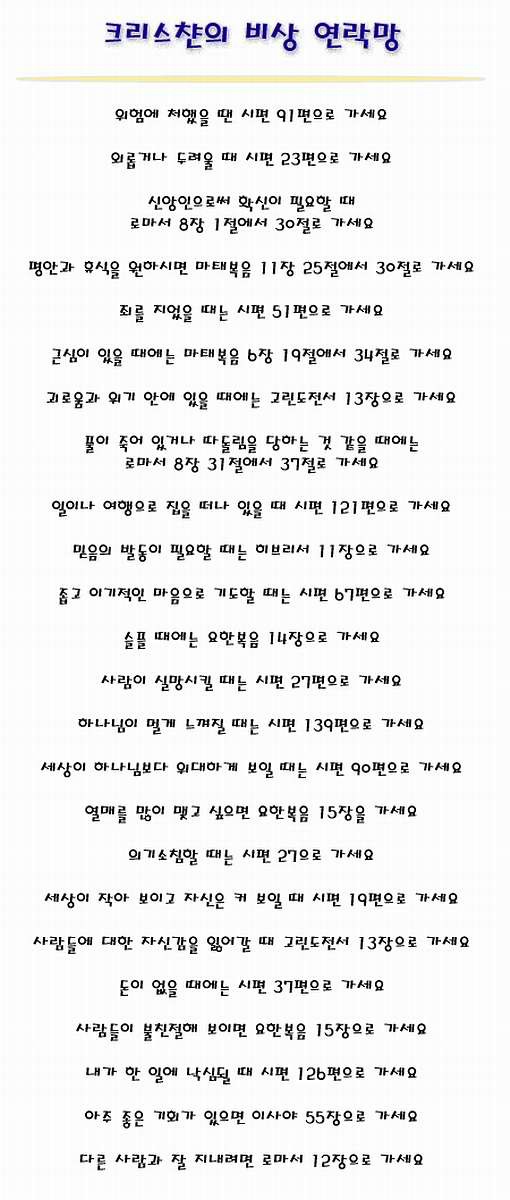 크리스챤의 비상 연락망
위험에 처했을 땐 시편 91편으로 가세요
외롭거나 두려울 때 시편 23편으로 가세요
신앙인으로써 확신이 필요할 때
로마서 8장 1절에서 30절로 가세요
평안과 휴식을 원하시면 마태복음 11장 25절에서 30절로 가세요
죄를 지었을 때는 시편 51편으로 가세요
근심이 있을 때에는 마태복음 6장 19절에서 34절로 가세요
괴로움과 위기 안에 있을 때에는 고린도전서 13장으로 가세요
풀이 죽어 있거나 따돌림을 당하는 것 같을 때에는
로마서 8장 31절에서 37절로 가세요
일이나 여행으로 집을 떠나 있을 때 시편 121편으로 가세요
믿음의 발동이 필요할 때는 히브리서 11장으로 가세요
좁고 이기적인 마음으로 기도할 때는 시편 67편으로 가세요
슬플 때에는 요한복음 14장으로 가세요
사람이 실망시킬 때는 시편 27편으로 가세요
하나님이 멀게 느껴질 때는 시편 139편으로 가세요
세상이 하나님보다 위대하게 보일 때는 시편 90편으로 가세요
열매를 많이 맺고 싶으면 요한복음 15장을 가세요
의기소침할 때는 시편 27으로 가세요
세상이 작아 보이고 자신은 커 보일 때 시편 19편으로 가세요
사람들에 대한 자신감을 잃어갈 때 고린도전서 13장으로 가세요
돈이 없을 때에는 시편 37편으로 가세요
사람들이 불친절해 보이면 요한복음 15장으로 가세요
내가 한 일에 낙심될 때 시편 126편으로 가세요
아주 좋은 기회가 있으면 이사야 55장으로 가세요
다른 사람과 잘 지내려면 로마서 12장으로 가세요